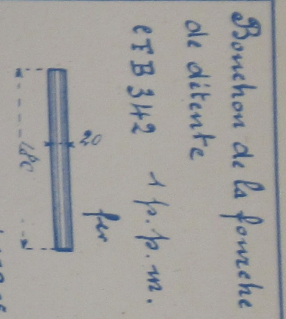 Bouchon de la fourche
de détente
ETB 342 1 p.p.m.
20
fer
180